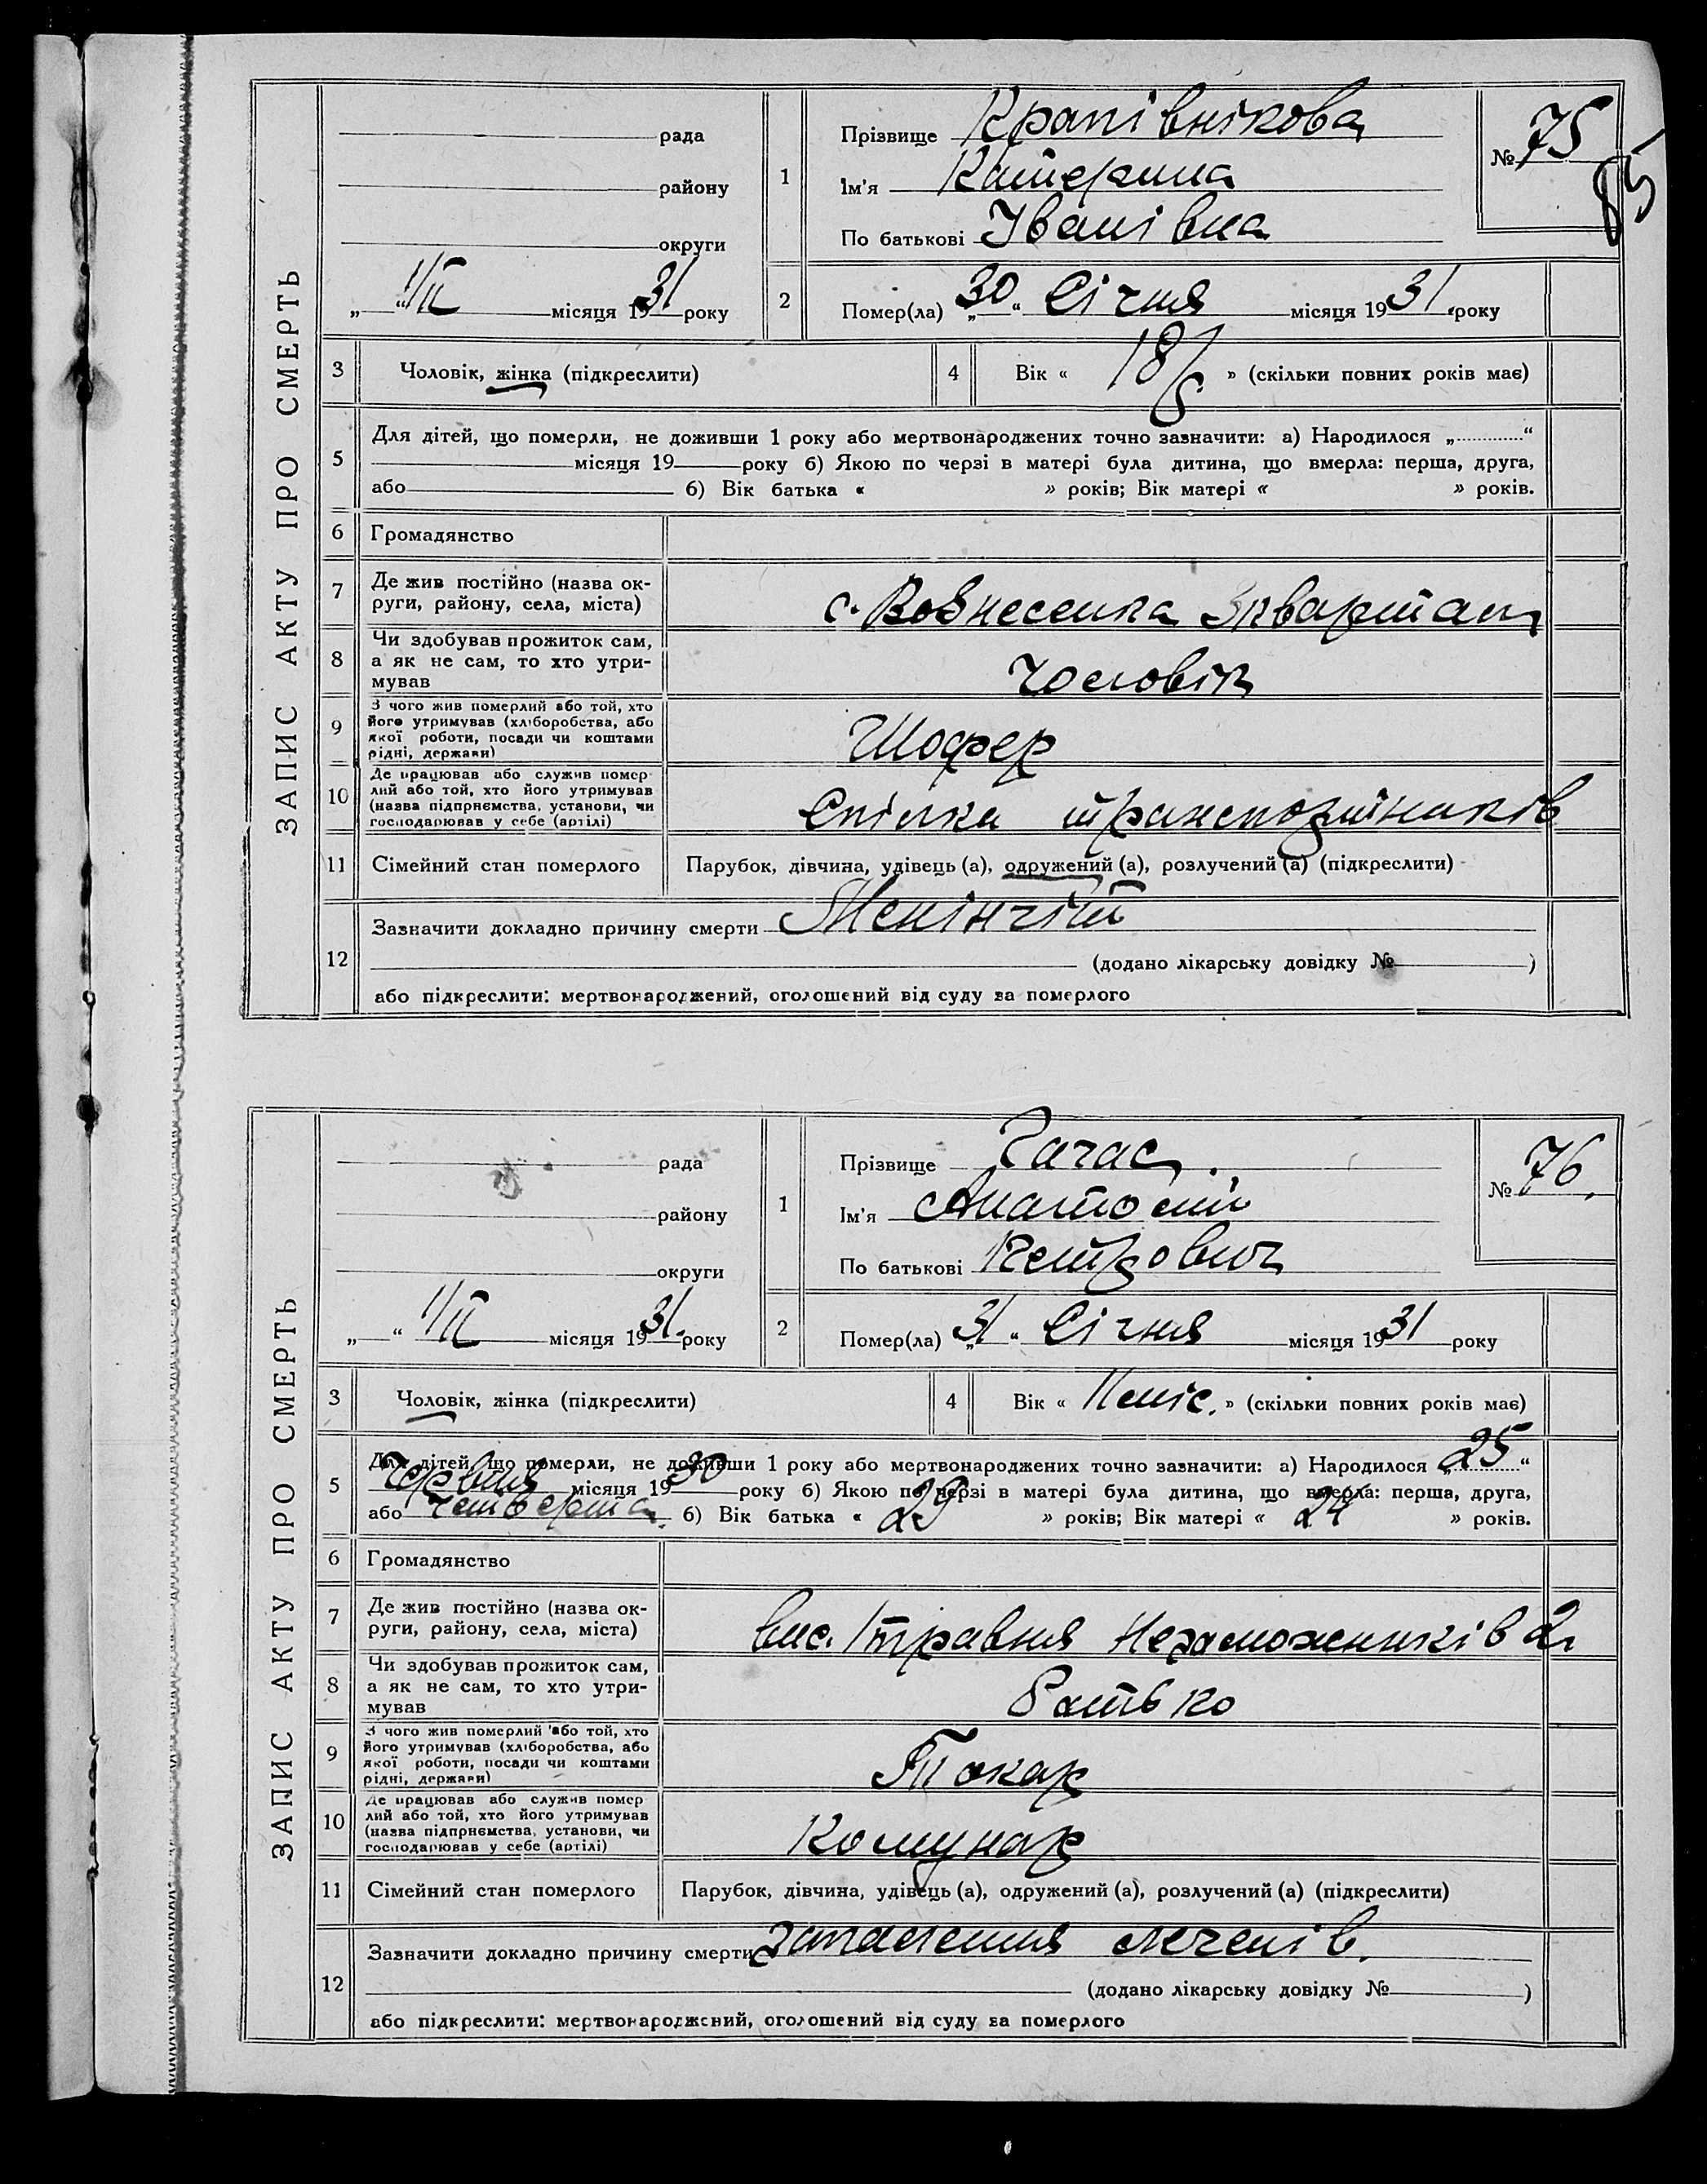 ЗАПИС АКТУ ПРО СМЕРТЬ
рада
району
округи
„ “ 1/II місяця 1931 року
1
Прізвище Крапівнікова
Ім'я Катерина
По батькові Іванівна
№ 75
85
2
Помер(ла) „30“ Січня місяця 1931 року
3 Чоловік, жінка (підкреслити)
4 Вік « 18 » (скільки повних років має)
5
Для дітей, що померли, не доживши 1 року або мертвонароджених точно зазначити: а) Народилося „ “
місяця 19 року б) Якою по черзі в матері була дитина, що вмерла: перша, друга,
або б) Вік батька « » років; Вік матері « » років.
6 Громадянство
7 Де жив постійно (назва ок-
руги, району, села, міста)
с. Вознесенка 3 квартал
8 Чи здобував прожиток сам,
а як не сам, то хто утри-
мував
Чоловік
9 З чого жив померлий або той, хто
його утримував (хліборобства, або
якої роботи, посади чи коштами
рідні, держави)
Шофер
10 Де працював або служив помер
лий або той, хто його утримував
(назва підприємства, установи, чи
господарював у себе (артілі)
Спілка транспортників
11 Сімейний стан померлого Парубок, дівчина, удівець (а), одружений (а), розлучений (а) (підкреслити)
12 Зазначити докладно причину смерти Менінгіт
(додано лікарську довідку № )
або підкреслити: мертвонароджений, оголошений від суду за померлого
ЗАПИС АКТУ ПРО СМЕРТЬ
рада
району
округи
„ “ 1/II місяця 1931. року
1
Прізвище Гагас
Ім'я Анатолій
По батькові Петрович
№ 76.
2
Помер(ла) „31“ Січня місяця 1931 року
3 Чоловік, жінка (підкреслити)
4 Вік « 7 міс. » (скільки повних років має)
5
Для дітей, що померли, не доживши 1 року або мертвонароджених точно зазначити: а) Народилося „25“
Червня місяця 1930 року б) Якою по черзі в матері була дитина, що вмерла: перша, друга,
або четверта. б) Вік батька « 29 » років; Вік матері « 24 » років.
6 Громадянство
7 Де жив постійно (назва ок-
руги, району, села, міста)
вис. 1 травня Незаможників 21
8 Чи здобував прожиток сам,
а як не сам, то хто утри-
мував
Батько
9 З чого жив померлий або той, хто
його утримував (хліборобства, або
якої роботи, посади чи коштами
рідні, держави)
Токар
10 Де працював або служив помер
лий або той, хто його утримував
(назва підприємства, установи, чи
господарював у себе (артілі)
Комунар
11 Сімейний стан померлого Парубок, дівчина, удівець (а), одружений (а), розлучений (а) (підкреслити)
12 Зазначити докладно причину смерти запалення легенів.
(додано лікарську довідку № )
або підкреслити: мертвонароджений, оголошений від суду за померлого